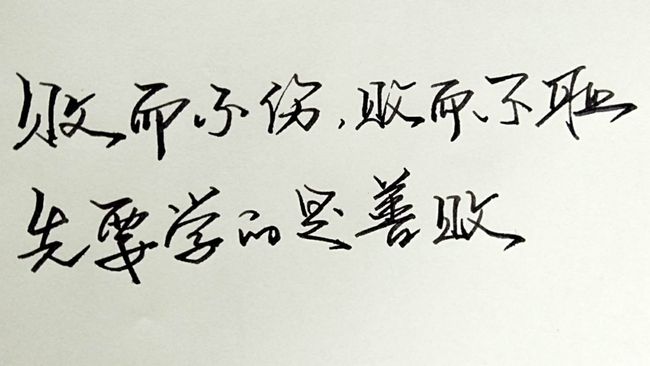 败而不伤，败而不耻
先要学的是善败